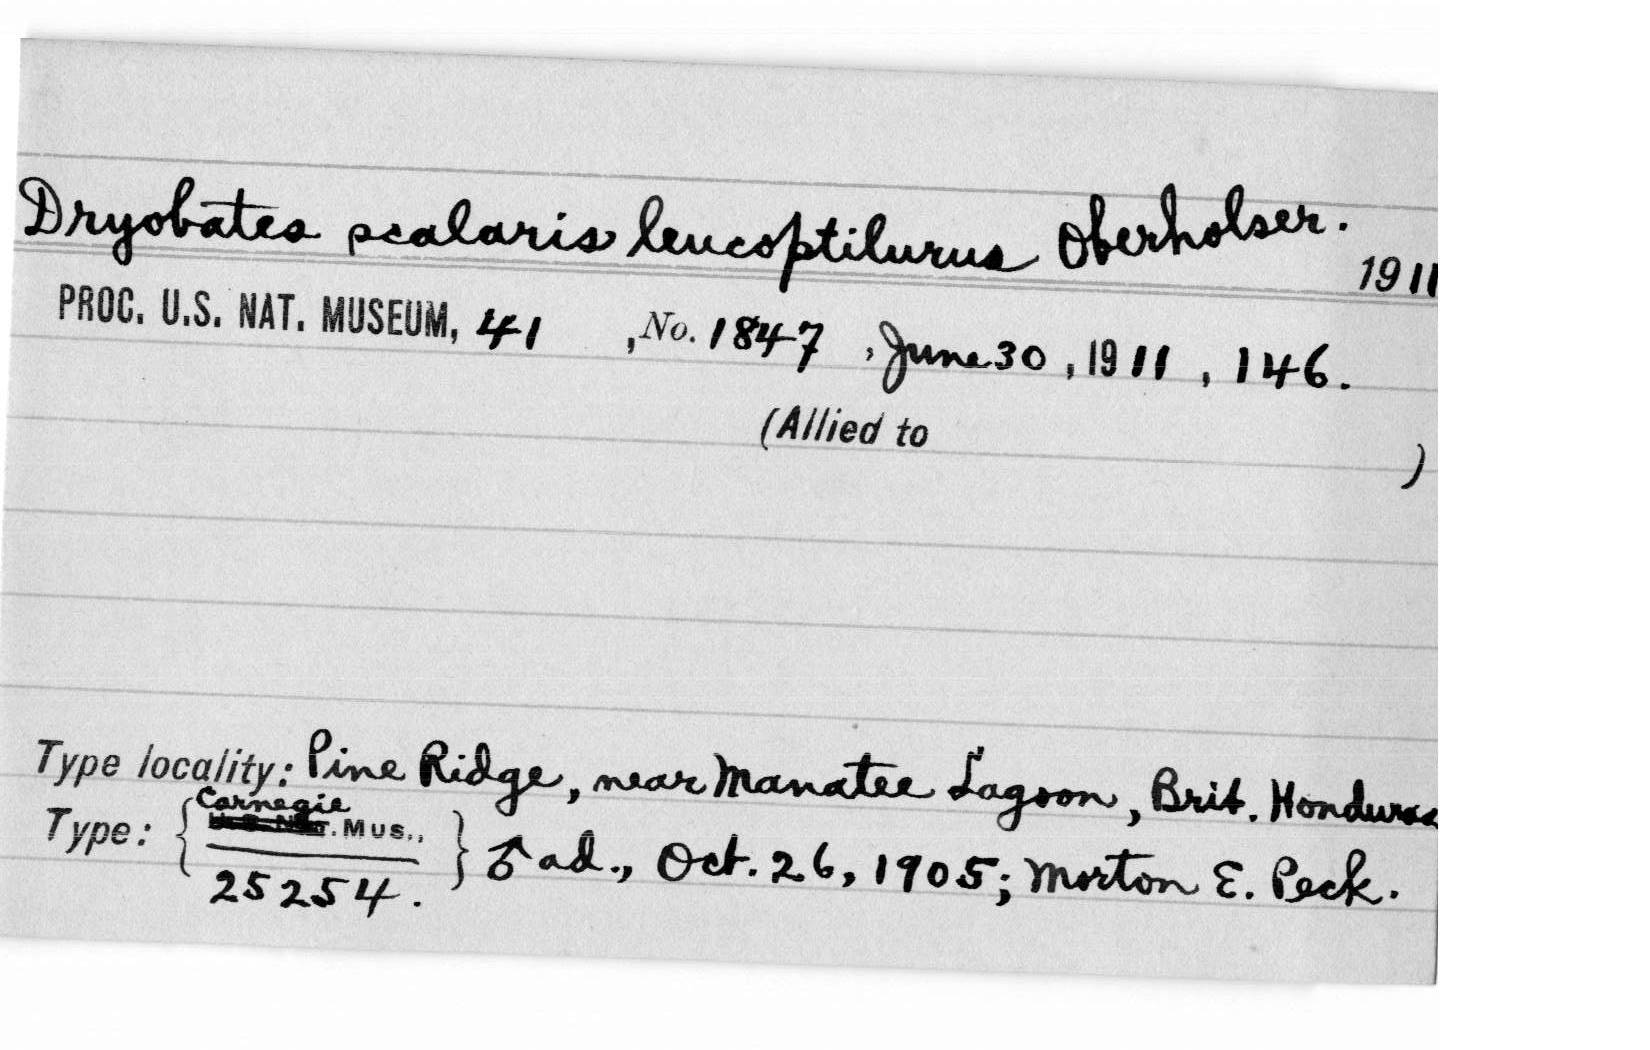 Dryobates scalaris leucoptilurus Oberholser.
1911
PROC. U.S. NAT. MUSEUM, 41 , No. 1847 , June 30 , 1911 , 146.
(Allied to )
Type locality: Pine Ridge, near Manatee Lagoon, Brit. Honduras
Carnegie
Type: { U.S. Nat. Mus., } ♂ ad., Oct. 26, 1905; Morton E. Peck.
25254.